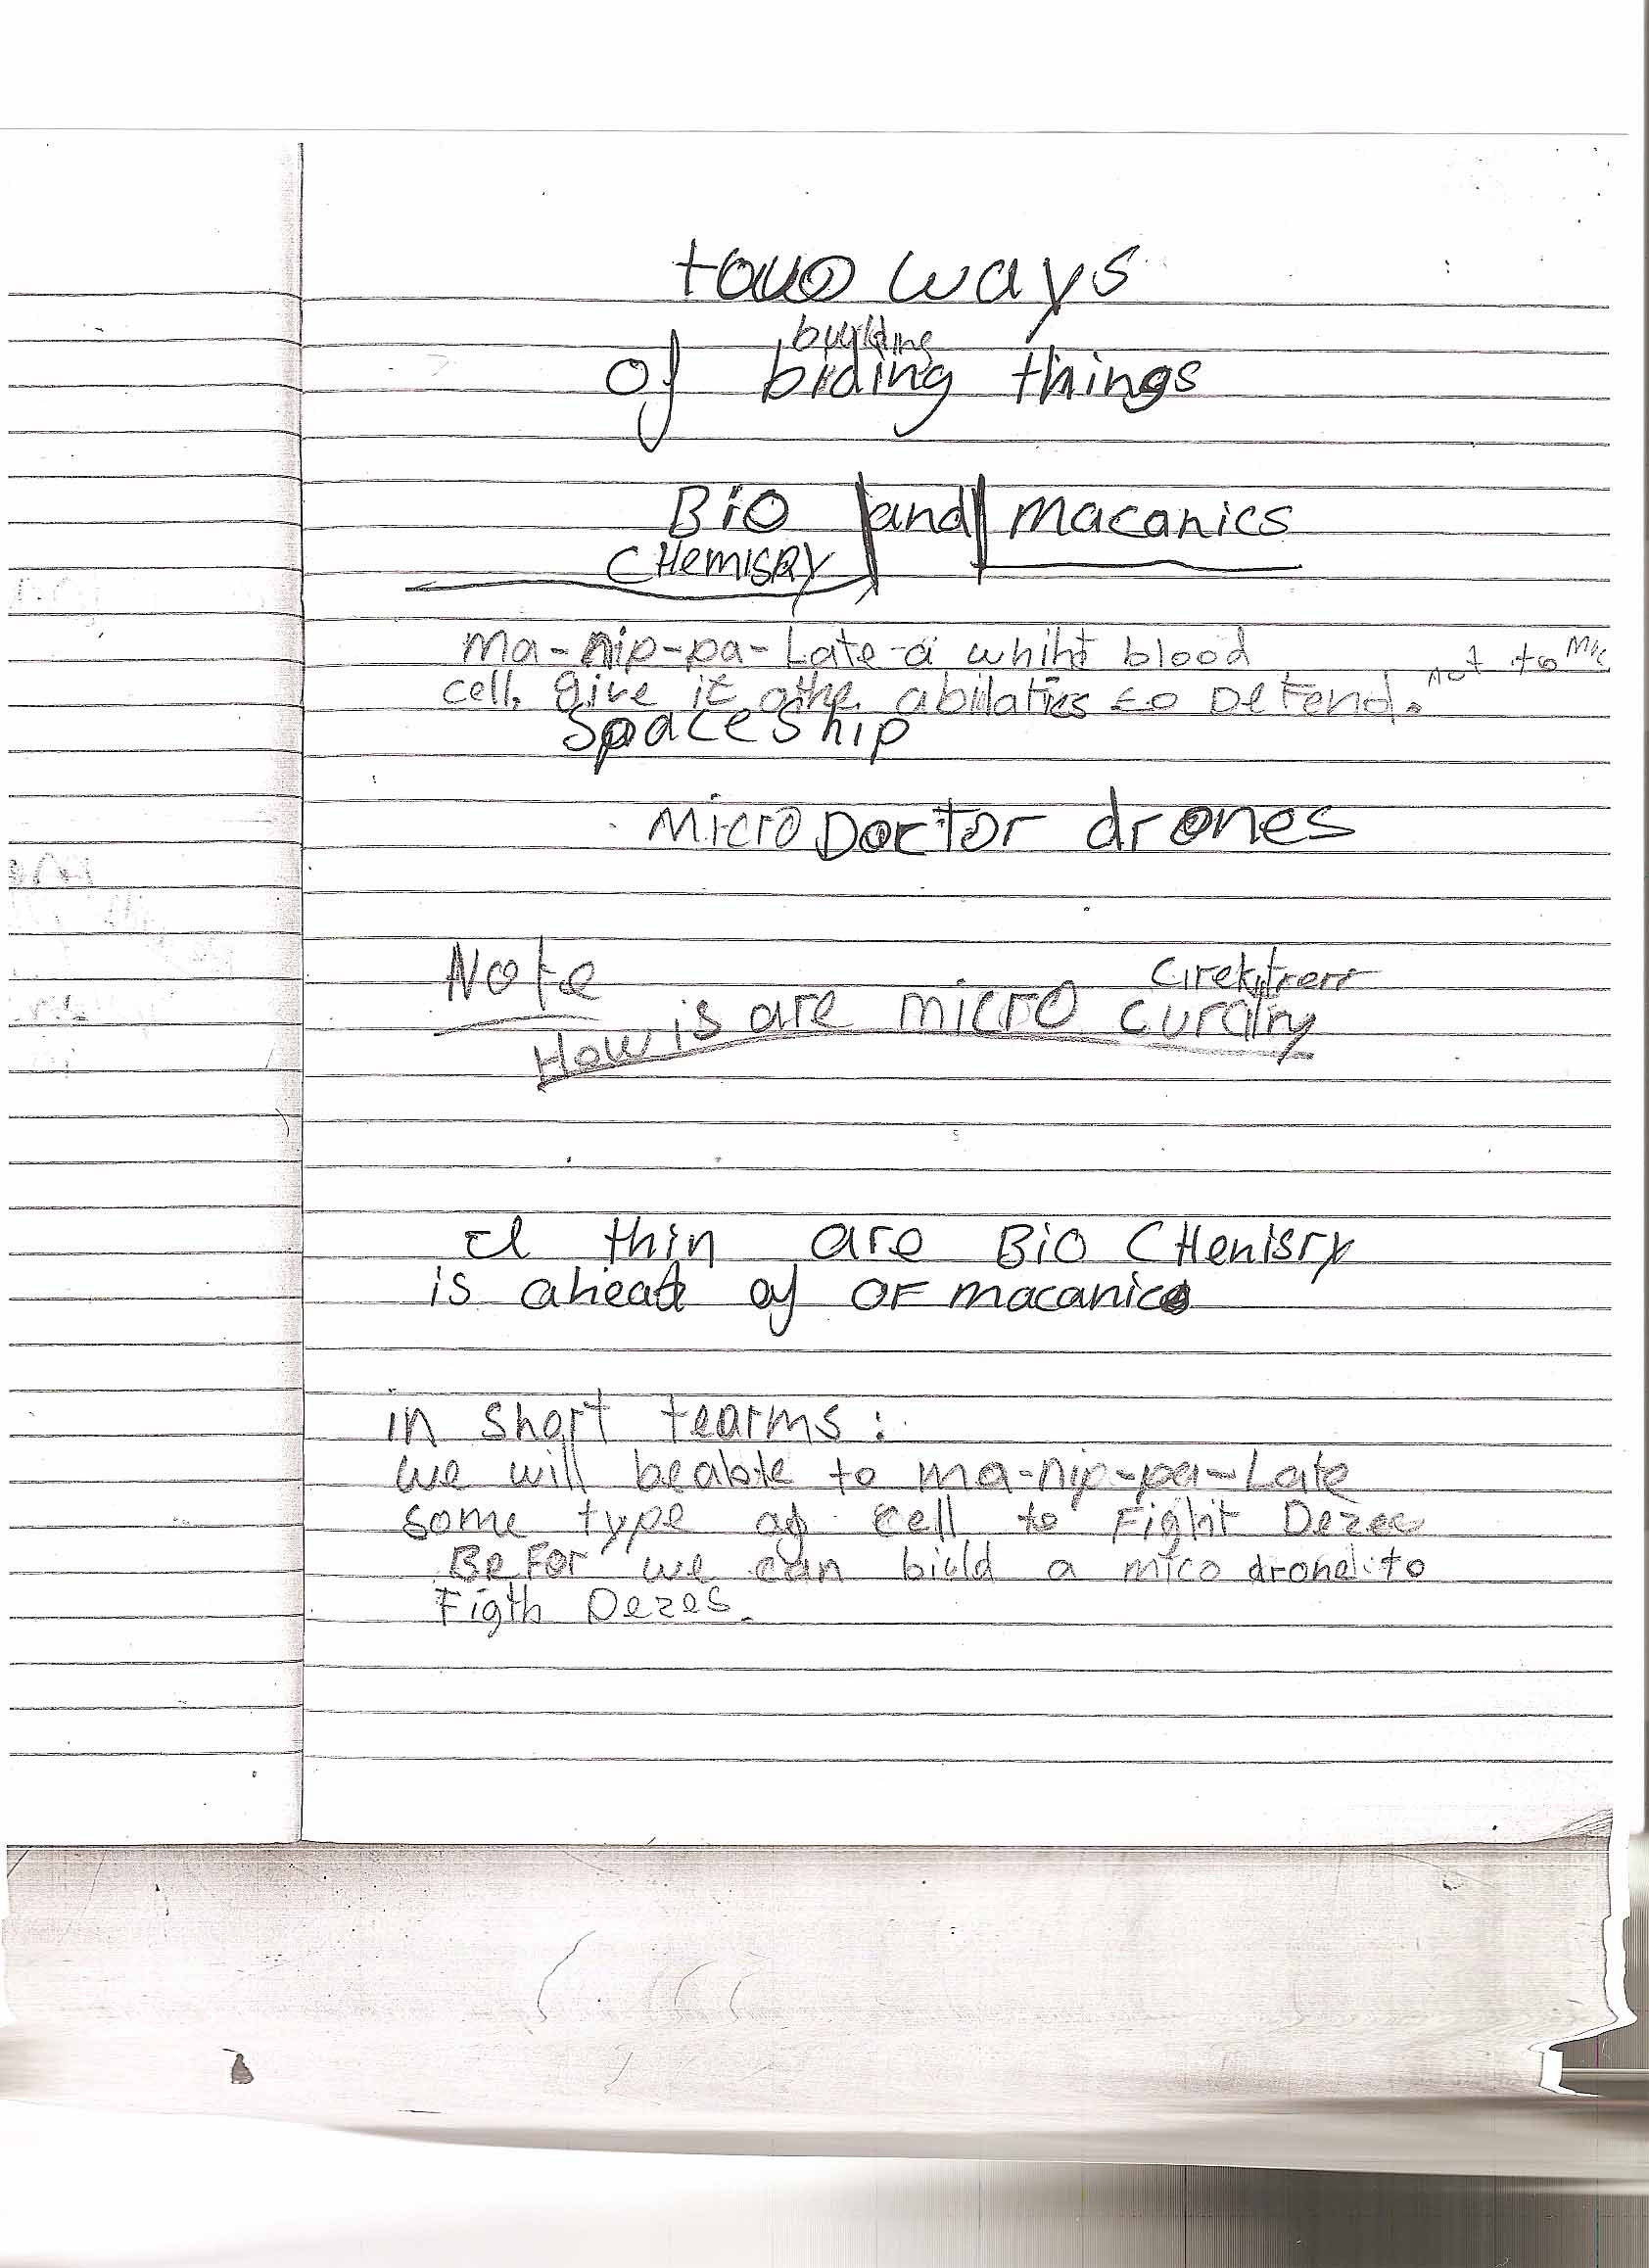 touo ways
building
of biding things
Bio and macanics
CHemisRy
ma-nip-pa-Late-a whiht blood
cell. give it othe abilaties to Defend. not to
SpaceShip
micro Doctor drones
Note
Cirekitrerr
How is are micro
I thin are Bio CHenisry
is ahead of OF macanics
in short tearms:
we will beable to ma-nip-pa-Late
some type of cell to Fight Dezec
BeFor we can biuld a mico drone to
Figth Dezes.